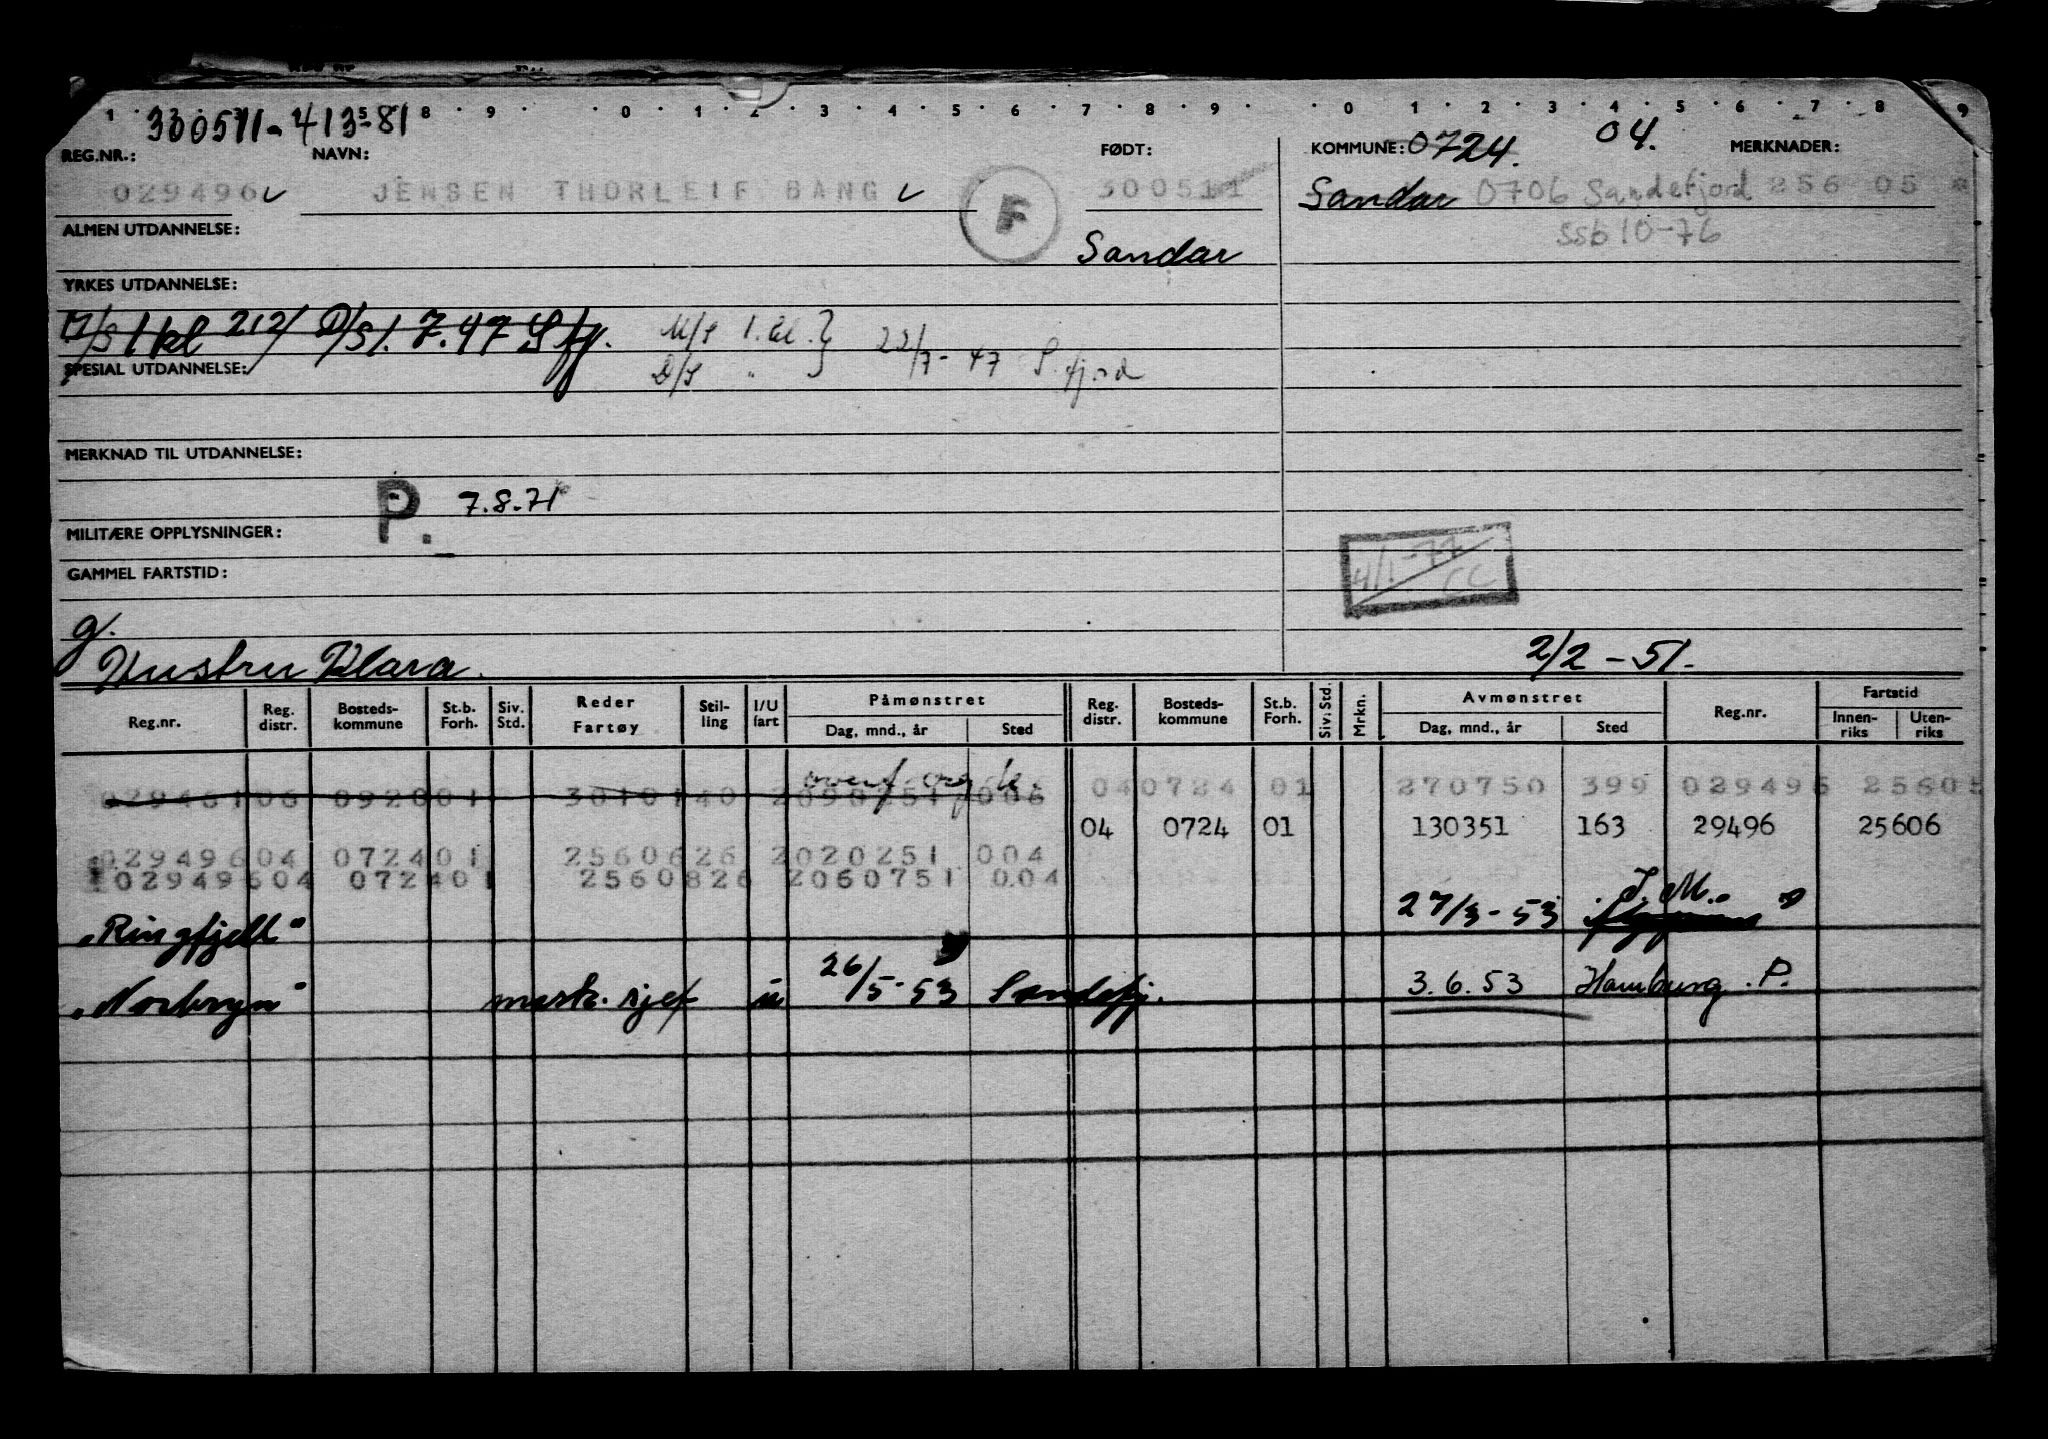 1 8 9 0 1 2 3 4 5 6 7 8 9 0 1 2 3 4 5 6 7 8 9
300511-41381
REG.NR.: NAVN: FØDT: KOMMUNE: 0724. 04. MERKNADER:
029496 JENSEN THORLEIF BANG F 300511 Sandar 0706 Sandefjord 256 05
ALMEN UTDANNELSE: Sandar ssb 10-76
YRKES UTDANNELSE:
M/S 1 kl 212/ D/S 1.7.47 S.fj. M/S 1.kl. } 22/7-47 S.fjord
SPESIAL UTDANNELSE: D/S "
MERKNAD TIL UTDANNELSE:
P. 7.8.71
MILITÆRE OPPLYSNINGER:
4/1-77
GAMMEL FARTSTID:
g.
Hustru Klara. 2/2-51.
Reg.nr. Reg. distr. Bosteds-kommune St.b. Forh. Siv. Std. Reder Fartøy Stil-ling I/U fart Påmønstret Dag, mnd., år Sted Reg. distr. Bosteds-kommune St.b. Forh. Siv. Std. Mrkn. Avmønstret Dag, mnd., år Sted Reg.nr. Fartstid Innen-riks Uten-riks
040724 01 270750 399 029496 25605
04 0724 01 130351 163 29496 25606
02949604 072401 2560626 2020251 004
02949604 072401 2560826 2060751 004
"Ringfjell" 27/3-53 J.M.
"Norbryn" mask. sjef u 26/5-53 Sandefj. 3.6.53 Hamburg. P.